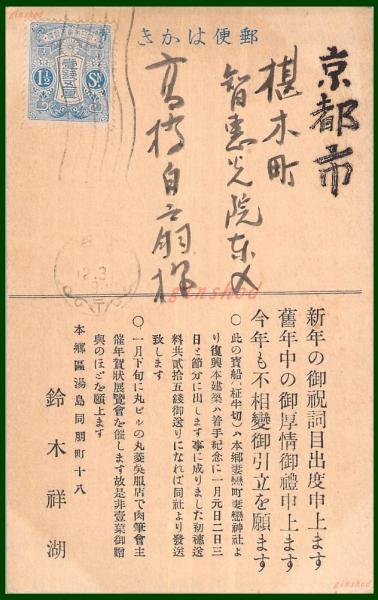 郵便はかき
京都市
椹木町
智恵光院東入
高橋自之扇様
新年の御祝詞目出度申上ます
舊年中の御厚情御禮申上ます
今年も不相變御引立を願ます
〇此の寶船(柾半切)ハ本郷妻戀町妻戀神社よ
り復興本建築ハ着手紀念に一月元日二日三
日と節分に出します事に成りました初穗送
料共貳拾五錢御送りになれば同社より發送
致します
〇一月下旬に丸ビルの丸菱吳服店で肉筆會主
催年賀狀展覽會を催します故是非壹葉御贈
與のほどを願上ます
本郷區湯島同朋町十八
鈴木祥湖
1½
Sn
壹錢五厘
12.3
genshod